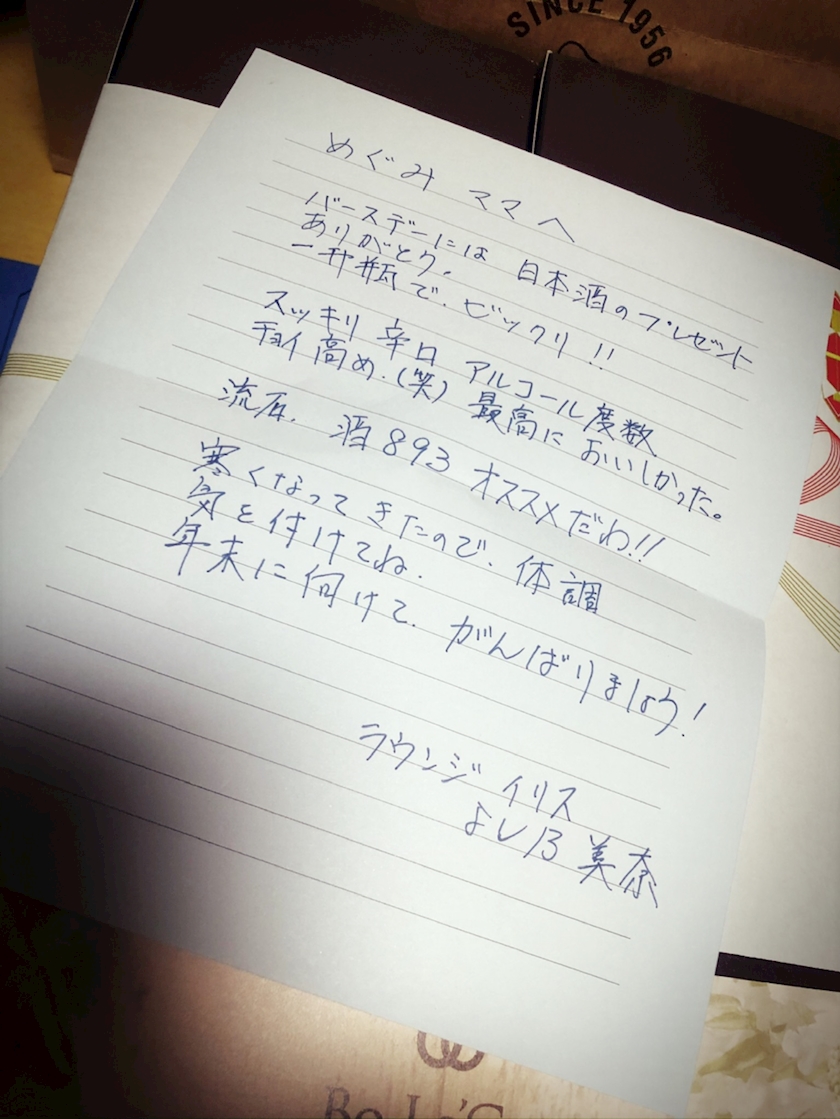 SINCE 1956
めぐみ ママへ
バースデーには 日本酒のプレゼント
ありがとう。
一升瓶で、ビックリ!!
スッキリ 辛口 アルコール度数
チョイ高め.(笑) 最高に おいしかった。
流石、酒893 オススメだわ!!
寒くなってきたので、体調
気を付けてね.
年末に向けて、がんばりましょう!
ラウンジ イリス
美奈